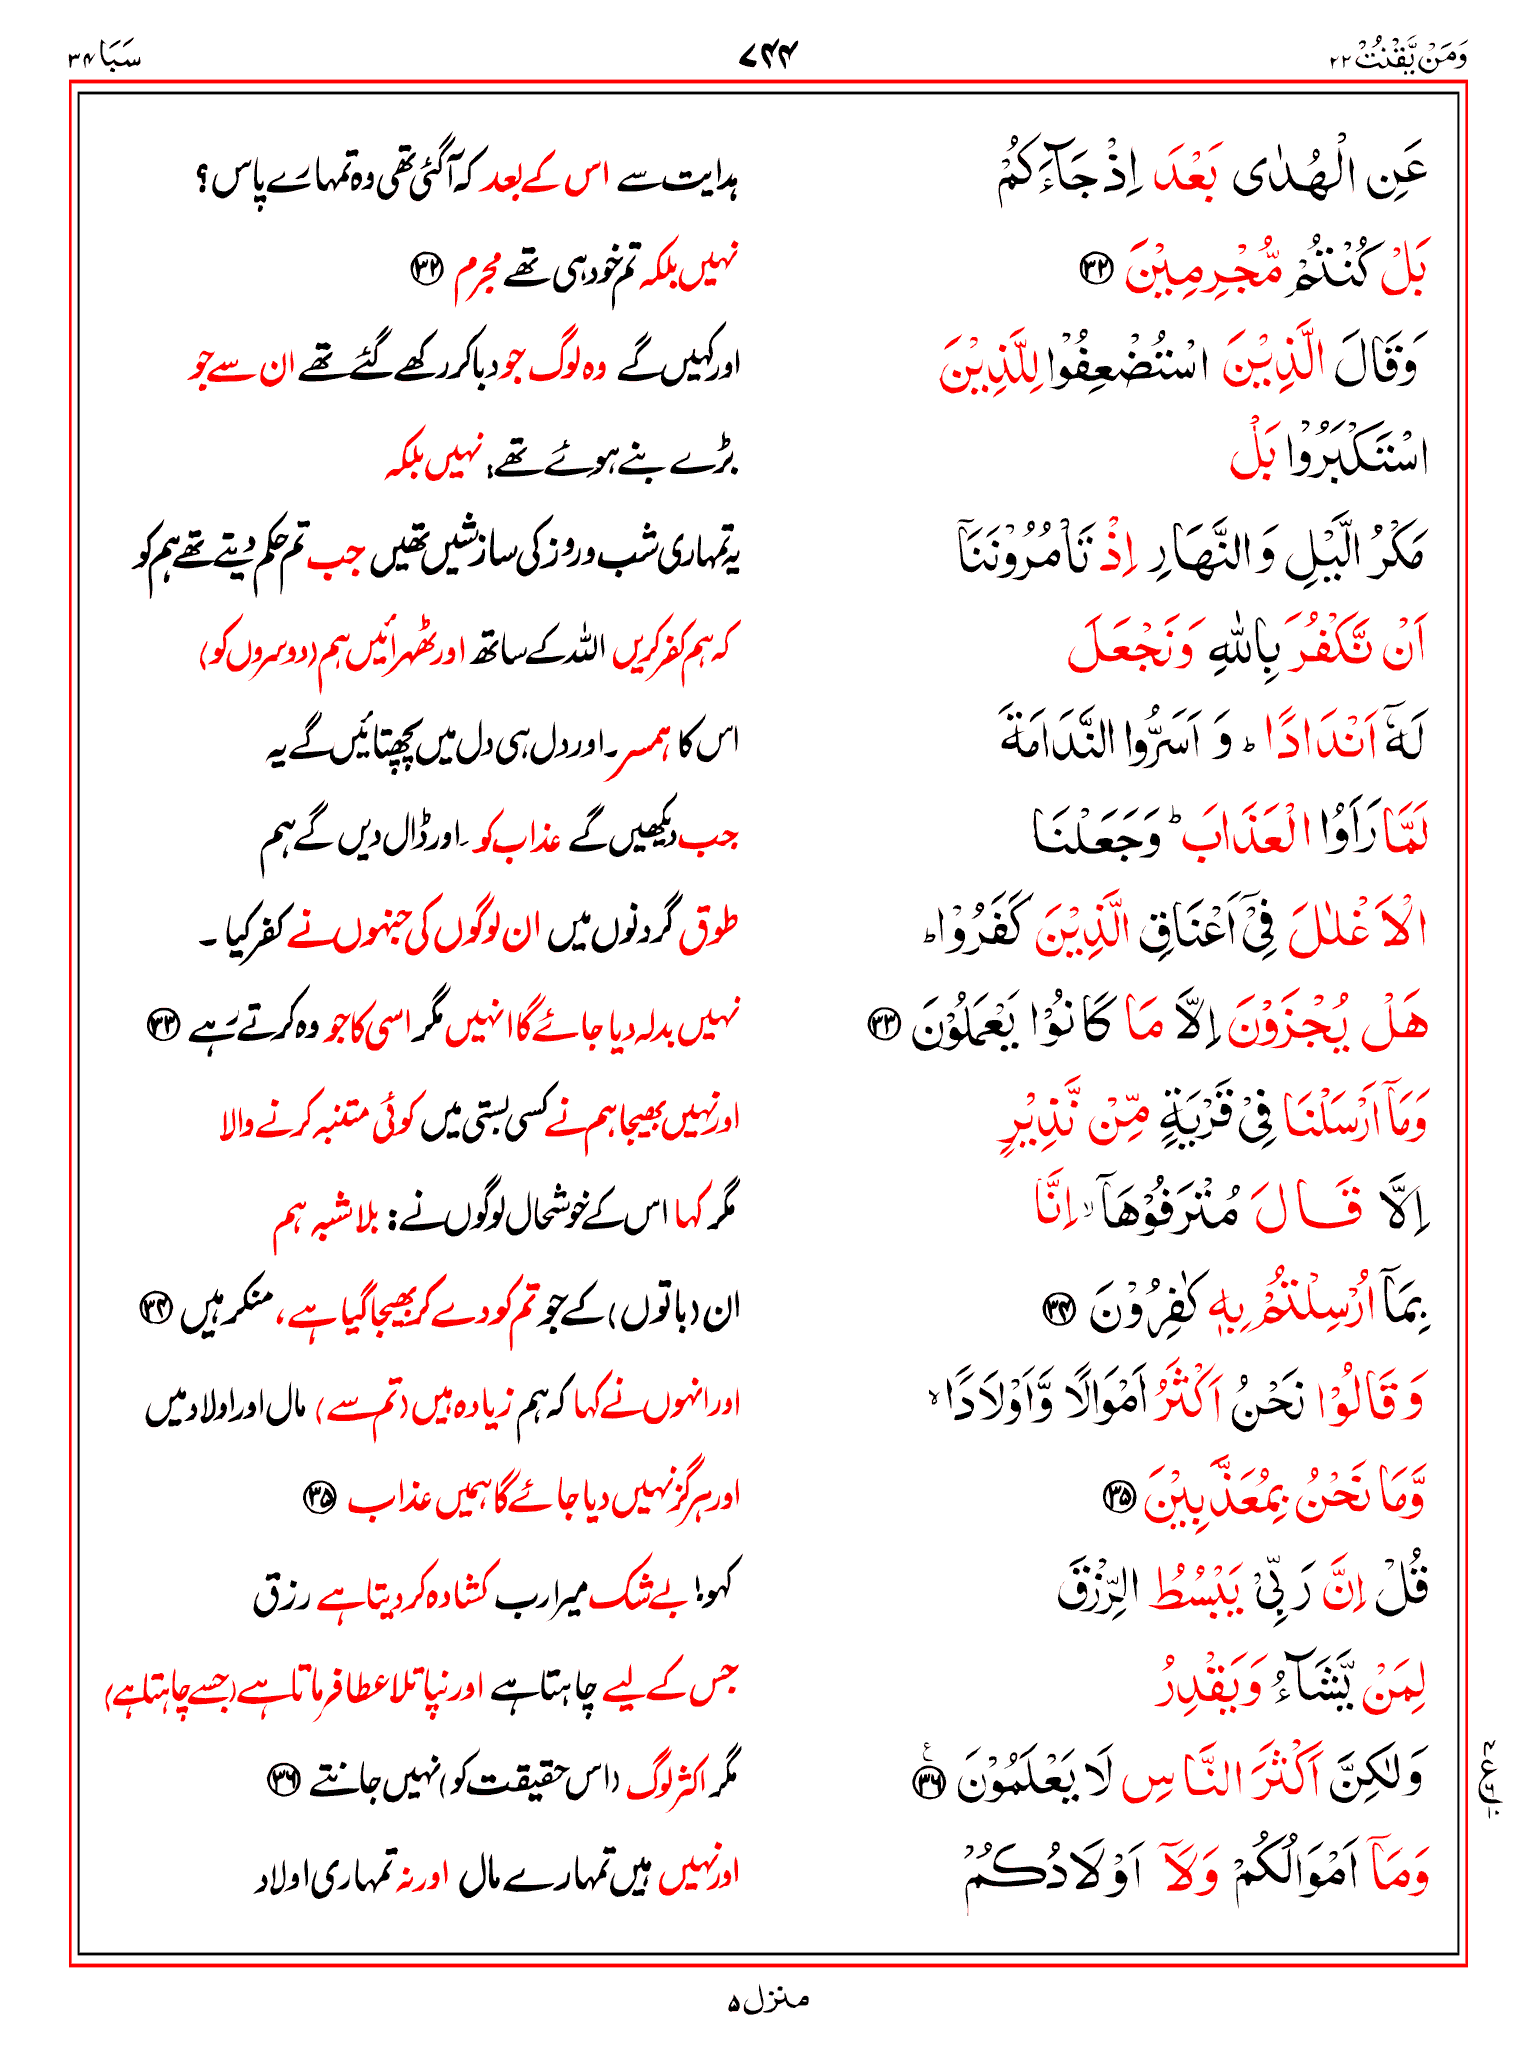 وَمَنْ يَّقْنُتْ ۲۲
۷۴۴
سَبَا ۳۴
عَنِ الْهُدٰى بَعْدَ اِذْ جَآءَكُمْ
ہدایت سے اس کے بعد کہ آگئی تھی وہ تمہارے پاس؟
بَلْ كُنْتُمْ مُّجْرِمِيْنَ ﴿۳۲﴾
نہیں بلکہ تم خود ہی تھے مجرم ﴿۳۲﴾
وَقَالَ الَّذِيْنَ اسْتُضْعِفُوْا لِلَّذِيْنَ
اور کہیں گے وہ لوگ جو دبا کر رکھے گئے تھے ان سے جو
اسْتَكْبَرُوْا بَلْ
بڑے بنے ہوئے تھے: نہیں بلکہ
مَكْرُ الَّيْلِ وَالنَّهَارِ اِذْ تَاْمُرُوْنَنَآ
یہ تمہاری شب و روز کی سازشیں تھیں جب تم حکم دیتے تھے ہم کو
اَنْ نَّكْفُرَ بِاللّٰهِ وَنَجْعَلَ
کہ ہم کفر کریں اللہ کے ساتھ اور ٹھہرائیں ہم (دوسروں کو)
لَهٗٓ اَنْدَادًا ؕ وَ اَسَرُّوا النَّدَامَةَ
اس کا ہمسر۔ اور دل ہی دل میں پچھتائیں گے یہ
لَمَّا رَاَوُا الْعَذَابَ ؕ وَجَعَلْنَا
جب دیکھیں گے عذاب کو۔ اور ڈال دیں گے ہم
الْاَغْلٰلَ فِيْٓ اَعْنَاقِ الَّذِيْنَ كَفَرُوْا ؕ
طوق گردنوں میں ان لوگوں کی جنہوں نے کفر کیا۔
هَلْ يُجْزَوْنَ اِلَّا مَا كَانُوْا يَعْمَلُوْنَ ﴿۳۳﴾
نہیں بدلہ دیا جائے گا انہیں مگر اسی کا جو وہ کرتے رہے ﴿۳۳﴾
وَمَآ اَرْسَلْنَا فِيْ قَرْيَةٍ مِّنْ نَّذِيْرٍ
اور نہیں بھیجا ہم نے کسی بستی میں کوئی متنبہ کرنے والا
اِلَّا قَالَ مُتْرَفُوْهَآ ۙ اِنَّا
مگر کہا اس کے خوشحال لوگوں نے: بلاشبہ ہم
بِمَآ اُرْسِلْتُمْ بِهٖ كٰفِرُوْنَ ﴿۳۴﴾
ان (باتوں) کے جو تم کو دے کر بھیجا گیا ہے، منکر ہیں ﴿۳۴﴾
وَقَالُوْا نَحْنُ اَكْثَرُ اَمْوَالًا وَّاَوْلَادًا ۙ
اور انہوں نے کہا کہ ہم زیادہ ہیں (تم سے) مال اور اولاد میں
وَّمَا نَحْنُ بِمُعَذَّبِيْنَ ﴿۳۵﴾
اور ہرگز نہیں دیا جائے گا ہمیں عذاب ﴿۳۵﴾
قُلْ اِنَّ رَبِّيْ يَبْسُطُ الرِّزْقَ
کہو! بے شک میرا رب کشادہ کر دیتا ہے رزق
لِمَنْ يَّشَآءُ وَيَقْدِرُ
جس کے لیے چاہتا ہے اور نپا تلا عطا فرماتا ہے (جسے چاہتا ہے)
وَلٰكِنَّ اَكْثَرَ النَّاسِ لَا يَعْلَمُوْنَ ﴿۳۶﴾
مگر اکثر لوگ (اس حقیقت کو) نہیں جانتے ﴿۳۶﴾
وَمَآ اَمْوَالُكُمْ وَلَآ اَوْلَادُكُمْ
اور نہیں ہیں تمہارے مال اور نہ تمہاری اولاد
منزل ۵